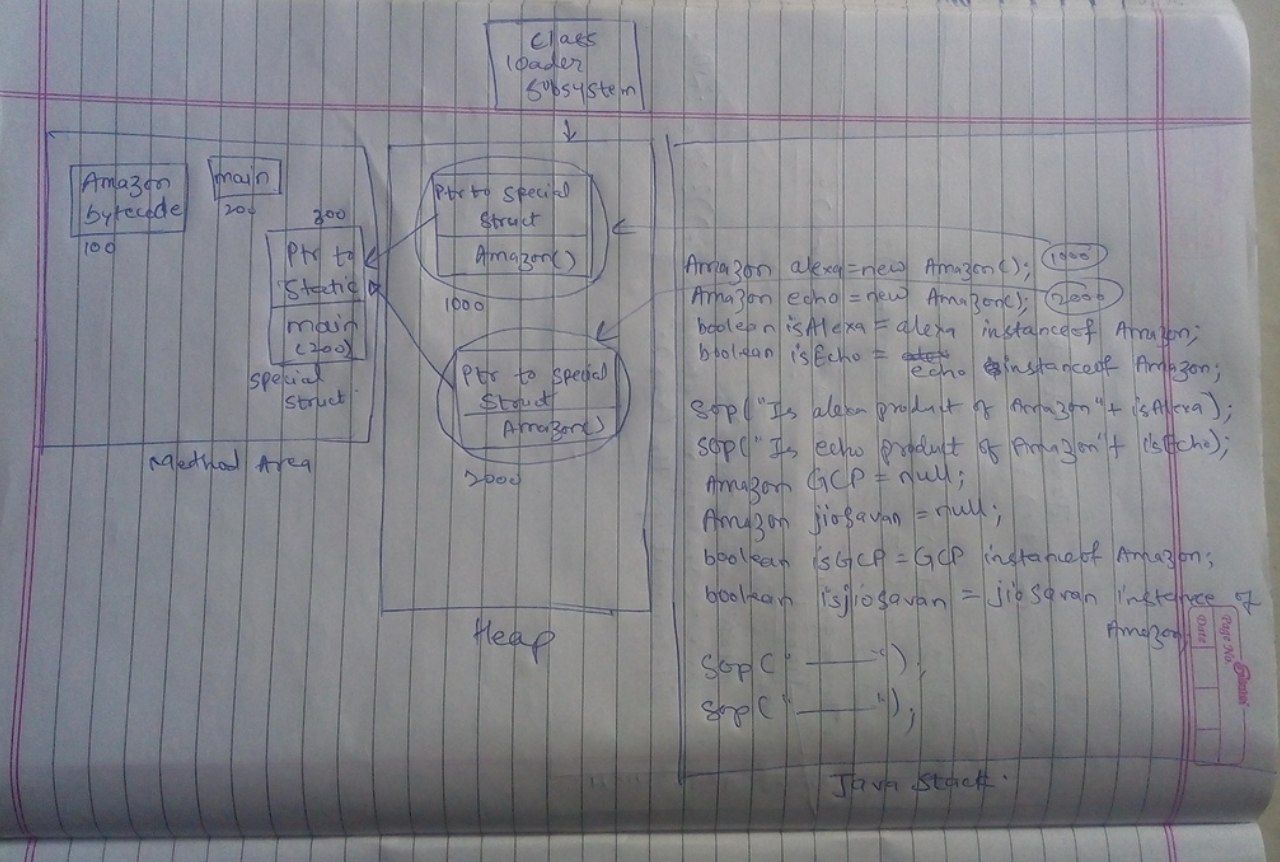 Class
loader
Subsystem
Amazon
bytecode
100
main
200
300
Ptr to
Static
main
(200)
Special
Struct
Method Area
Ptr to Special
Struct
Amazon()
1000
Ptr to Special
Struct
Amazon()
2000
Heap
Amazon alexa=new Amazon(); 1000
Amazon echo=new Amazon(); 2000
boolean isAlexa = alexa instanceof Amazon;
boolean isEcho = echo instanceof Amazon;
Sop("Is alexa product of Amazon"+ isAlexa);
Sop("Is echo product of Amazon"+ isEcho);
Amazon GCP = null;
Amazon jiosavan = null;
boolean isGCP = GCP instanceof Amazon;
boolean isjiosavan = jiosavan instance of
Amazon;
Sop("———");
Sop("———");
Java Stack.
Page No.
Date